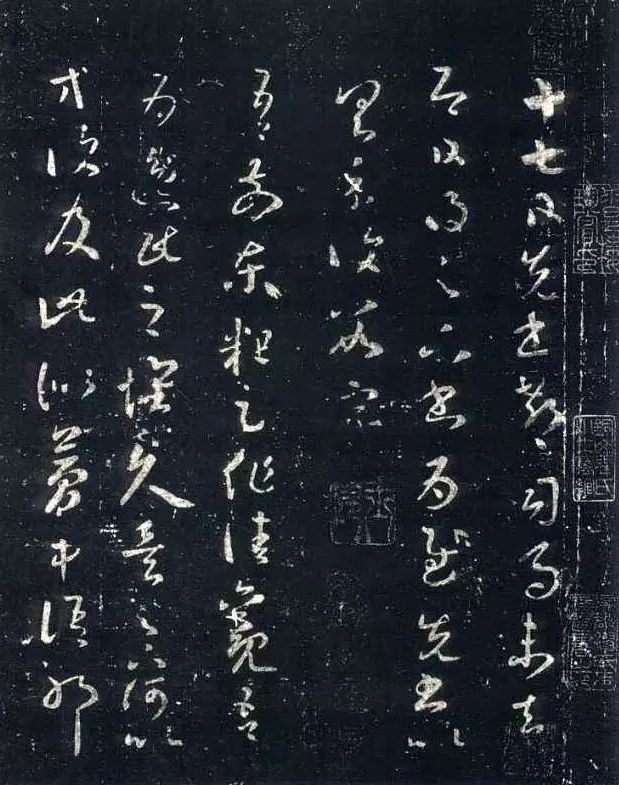 十七日先书郗司马未去
即日得足下书为慰先书以
具示复数字
吾前东粗足作佳观吾
为逸民之怀久矣足下何以
方复及此似梦中语耶